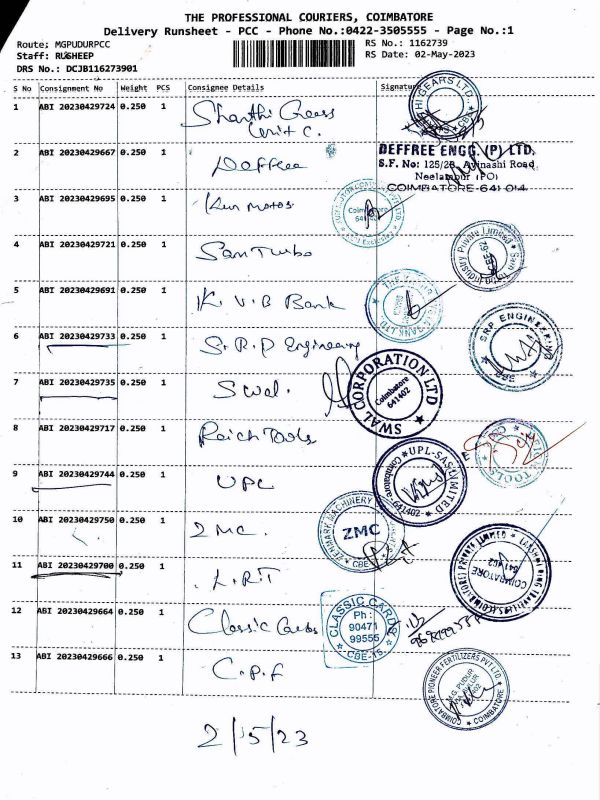 THE PROFESSIONAL COURIERS, COIMBATORE
Delivery Runsheet - PCC - Phone No.:0422-3505555 - Page No.:1
Route; MGPUDURPCC RS No.: 1162739
Staff: RUSHEEP RS Date: 02-May-2023
DRS No.: DCJB116273901
S No Consignment No Weight PCS Consignee Details Signature
1 ABI 20230429724 0.250 1 Shanthi Gears
Unit C.
HI GEARS LTD.
2 ABI 20230429667 0.250 1 Deffree
DEFFREE ENGG. (P) LTD.
S.F. No: 125/2B, Avinashi Road,
Neelambur (PO)
COIMBATORE-641 014
3 ABI 20230429695 0.250 1 Motors
4 ABI 20230429721 0.250 1 Sam Turbo
Sam Turbo Industry Private Limited
5 ABI 20230429691 0.250 1 K.V.B Bank
6 ABI 20230429733 0.250 1 S.R.P Engineering
SRP ENGINEERING
SRP
7 ABI 20230429735 0.250 1 Swal.
SWAL CORPORATION LTD
Coimbatore
641402
8 ABI 20230429717 0.250 1 Reich Tools
TOOLS
9 ABI 20230429744 0.250 1 UPL
UPL-SAS LIMITED
Coimbatore
641402
10 ABI 20230429750 0.250 1 ZMC.
ZENMARK MACHINERY
ZMC
CBE
11 ABI 20230429700 0.250 1 L.R.T
COIMBATORE
641402
12 ABI 20230429664 0.250 1 Classic Cards
CLASSIC CARDS
Ph :
90471
99555
CBE-15.
13 ABI 20230429666 0.250 1 C.P.F
COIMBATORE PIONEER FERTILIZERS PVT LTD
M.G. PUDUR
COIMBATORE
2/5/23